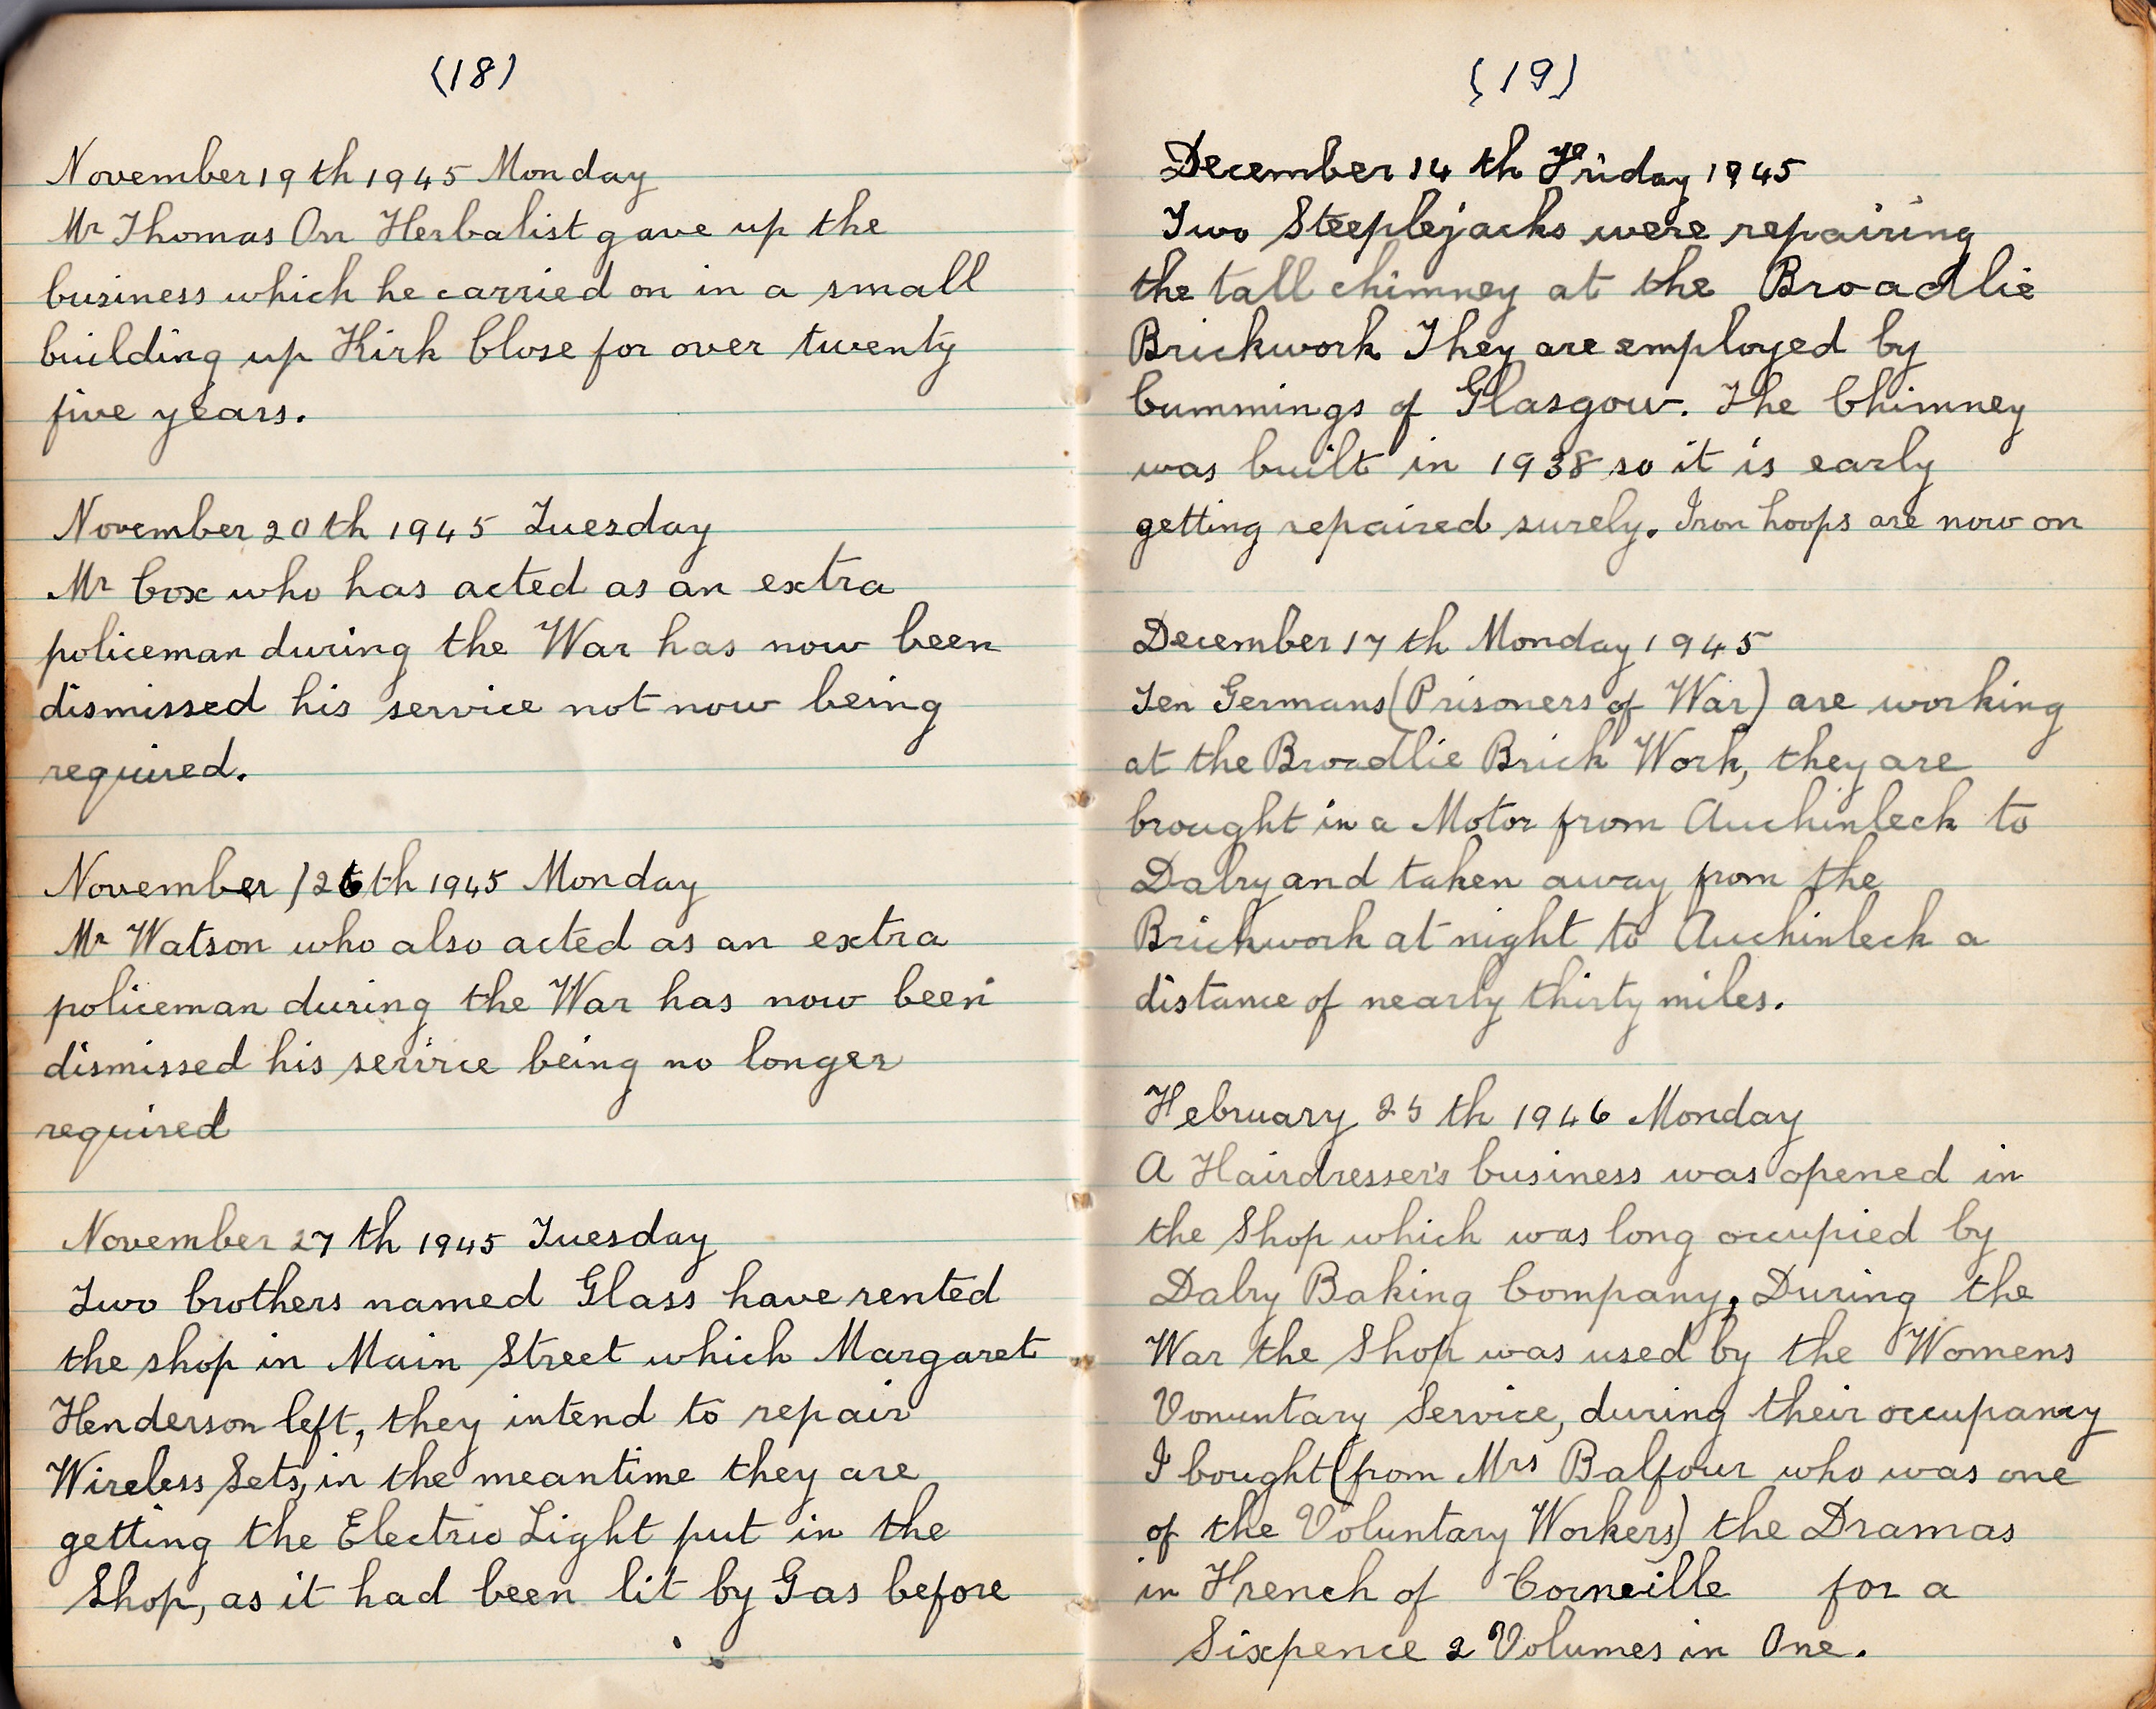 (18)
November 19th 1945 Monday
Mr Thomas Orr Herbalist gave up the
business which he carried on in a small
building up Kirk Close for over twenty
five years.
November 20th 1945 Tuesday
Mr Cox who has acted as an extra
policeman during the War has now been
dismissed his service not now being
required.
November 26th 1945 Monday
Mr Watson who also acted as an extra
policeman during the War has now been
dismissed his service being no longer
required
November 27th 1945 Tuesday
Two brothers named Glass have rented
the shop in Main Street which Margaret
Henderson left, they intend to repair
Wireless Sets, in the meantime they are
getting the Electric Light put in the
Shop, as it had been lit by Gas before
(19)
December 14th Friday 1945
Two Steeplejacks were repairing
the tall chimney at the Broadlie
Brickwork They are employed by
Cummings of Glasgow. The Chimney
was built in 1938 so it is early
getting repaired surely. Iron hoops are now on
December 17th Monday 1945
Ten Germans (Prisoners of War) are working
at the Broadlie Brick Work, they are
brought in a Motor from Auchinleck to
Dalry and taken away from the
Brickwork at night to Auchinleck a
distance of nearly thirty miles.
February 25th 1946 Monday
A Hairdresser's business was opened in
the Shop which was long occupied by
Dalry Baking Company. During the
War the Shop was used by the Womens
Vonuntary Service, during their occupancy
I bought (from Mrs Balfour who was one
of the Voluntary Workers) the Dramas
in French of Corneille for a
Sixpence 2 Volumes in One.